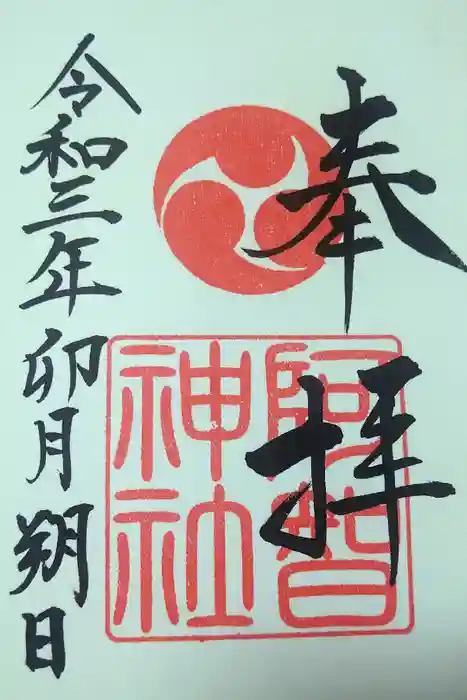 奉拝
阿智
神社
令和三年卯月朔日